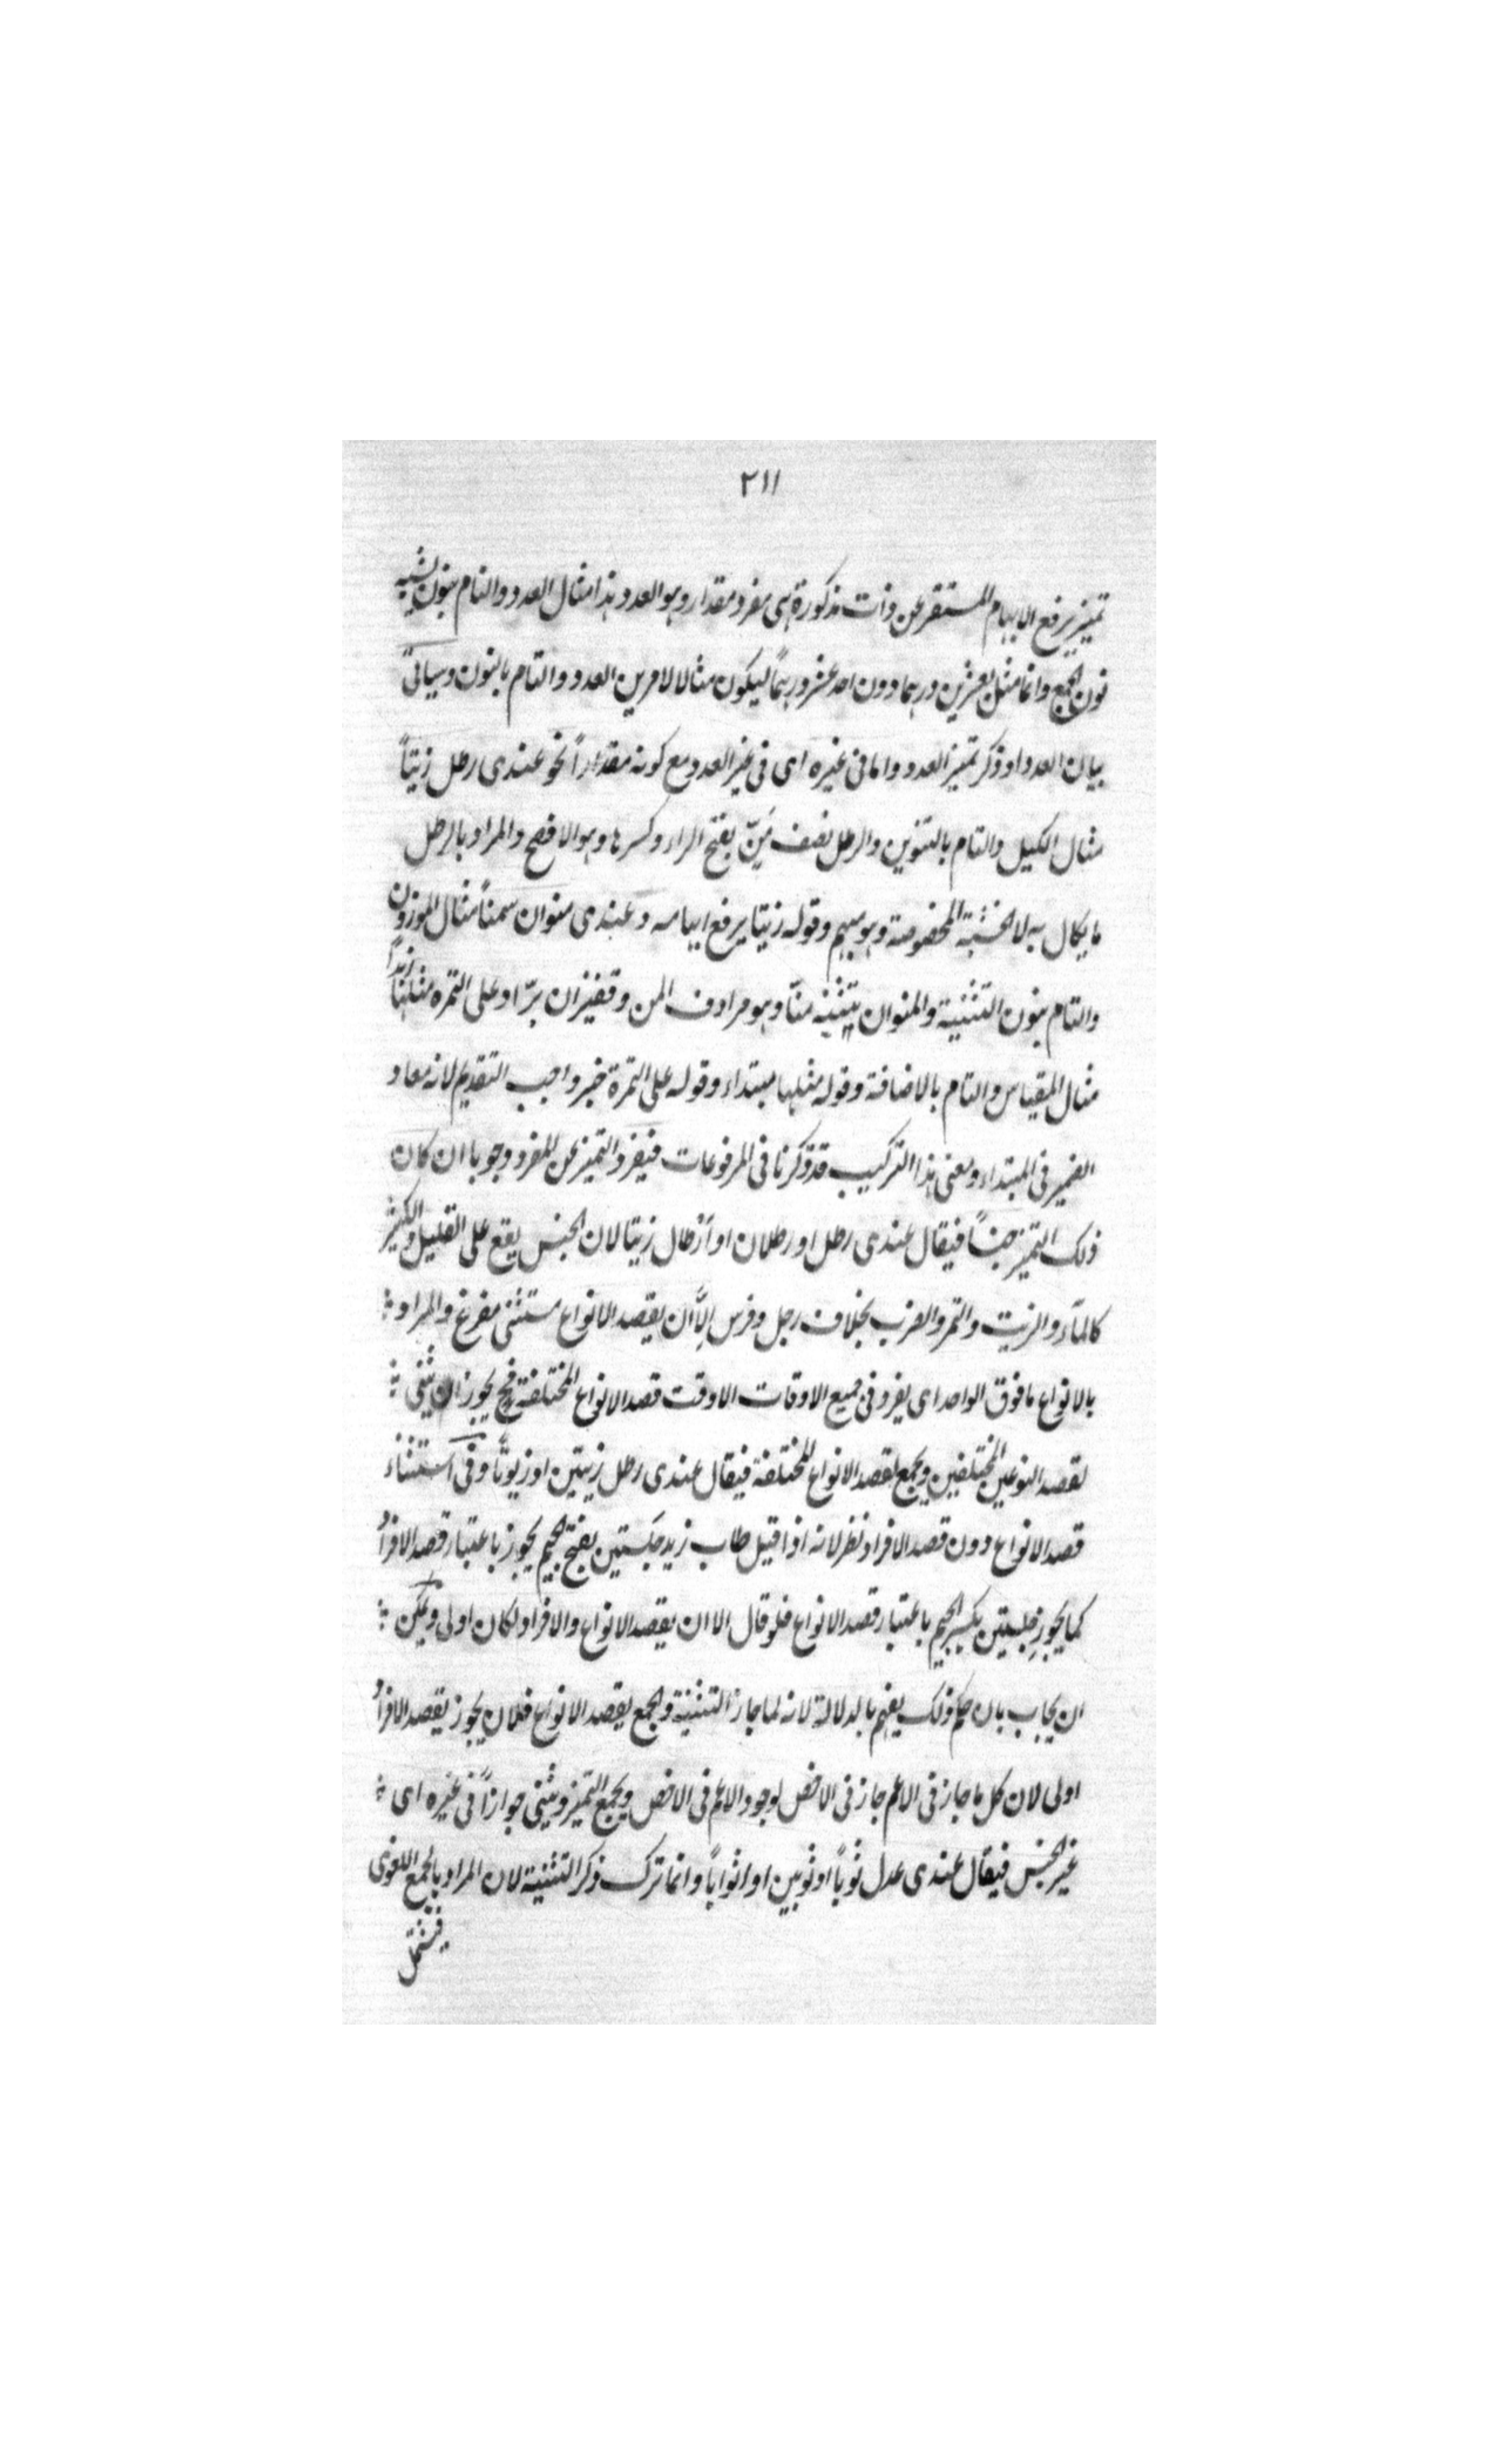 ٢١١
تميز يرفع الابهام المستقر عن ذات مذكورة هى مفرد مقدار وهو العدد هذا مثال العدد والتام بنون لشبه
نون الجمع وانما مثل بعشرين درهما دون احد عشر درهمًا ليكون مثالا لامرين العدد والتام بالنون وسياتى
بيان العدد او ذكر تميز العدد واما فى غيره اى فى غير العدد مع كونه مقدارًا نحو عندى رطل زيتًا
مثال الكيل والتام بالتنوين والرطل نصف مَنّ بفتح الراء وكسرها وهو الافصح والمراد بالرطل
ما يكال به لا الخشبة المخصوصة وهو مبهم وقوله زيتا يرفع ابهامه وعندى منوان سمنًا مثال الموزون
والتام بنون التثنية والمنوان تثنية منّا وهو مرادف المن وقفيزان برّا وعلى التمره مثلها زبدًا
مثال المقياس والتام بالاضافة وقوله مثلها مبتداء وقوله على التمرة خبر واجب التقديم لانه معاد
الضمير فى المبتداء ومعنى هذا التركيب قد ذكرنا فى المرفوعات فيفرد التميز عن المفرد وجوبا ان كان
ذلك التميز جنسًا فيقال عندى رطل او رطلان او اَرْطال زيتا لان الجنس يقع على القليل والكثير
كالمآء والزيت والتمر والضرب بخلاف رجل وفرس اِلّا ان يقصد الانواع مستثنى مفرغ والمراد
بالانواع ما فوق الواحد اى يفرد فى جميع الاوقات الا وقت قصد الانواع المختلفة فح يجوز ان يثنى
لقصد النوعين المختلفين ويجمع لقصد الانواع المختلفة فيقال عندى رطل زيتين او زيوتًا وفى استثناء
قصد الانواع دون قصد الافراد نظر لانه اذا قيل طاب زيد جَلستين بفتح الجيم يجوز باعتبار قصد الافراد
كما يجوز جِلستين بكسر الجيم باعتبار قصد الانواع فلو قال الا ان يقصد الانواع والافراد لكان اولى ويمكن
ان يجاب بان حكم ذلك يفهم بالدلالة لانه لما جاز التثنية والجمع يقصد الانواع فلان يجوز يقصد الافراد
اولى لان كل ما جاز فى الاعم جاز فى الاخص لوجود الاعم فى الاخص ويجمع التميز ويثنى جوازًا فى غيره اى
غير الجنس فيقال عندى عدل ثوبًا او ثوبين او اثوابًا وانما ترك ذكر التثنية لان المراد بالجمع اللغوى
فيشتمل